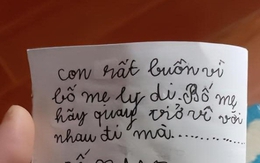 con rất buồn vì
bố mẹ ly dị. Bố mẹ
hãy quay trở về với
nhau đi mà...............